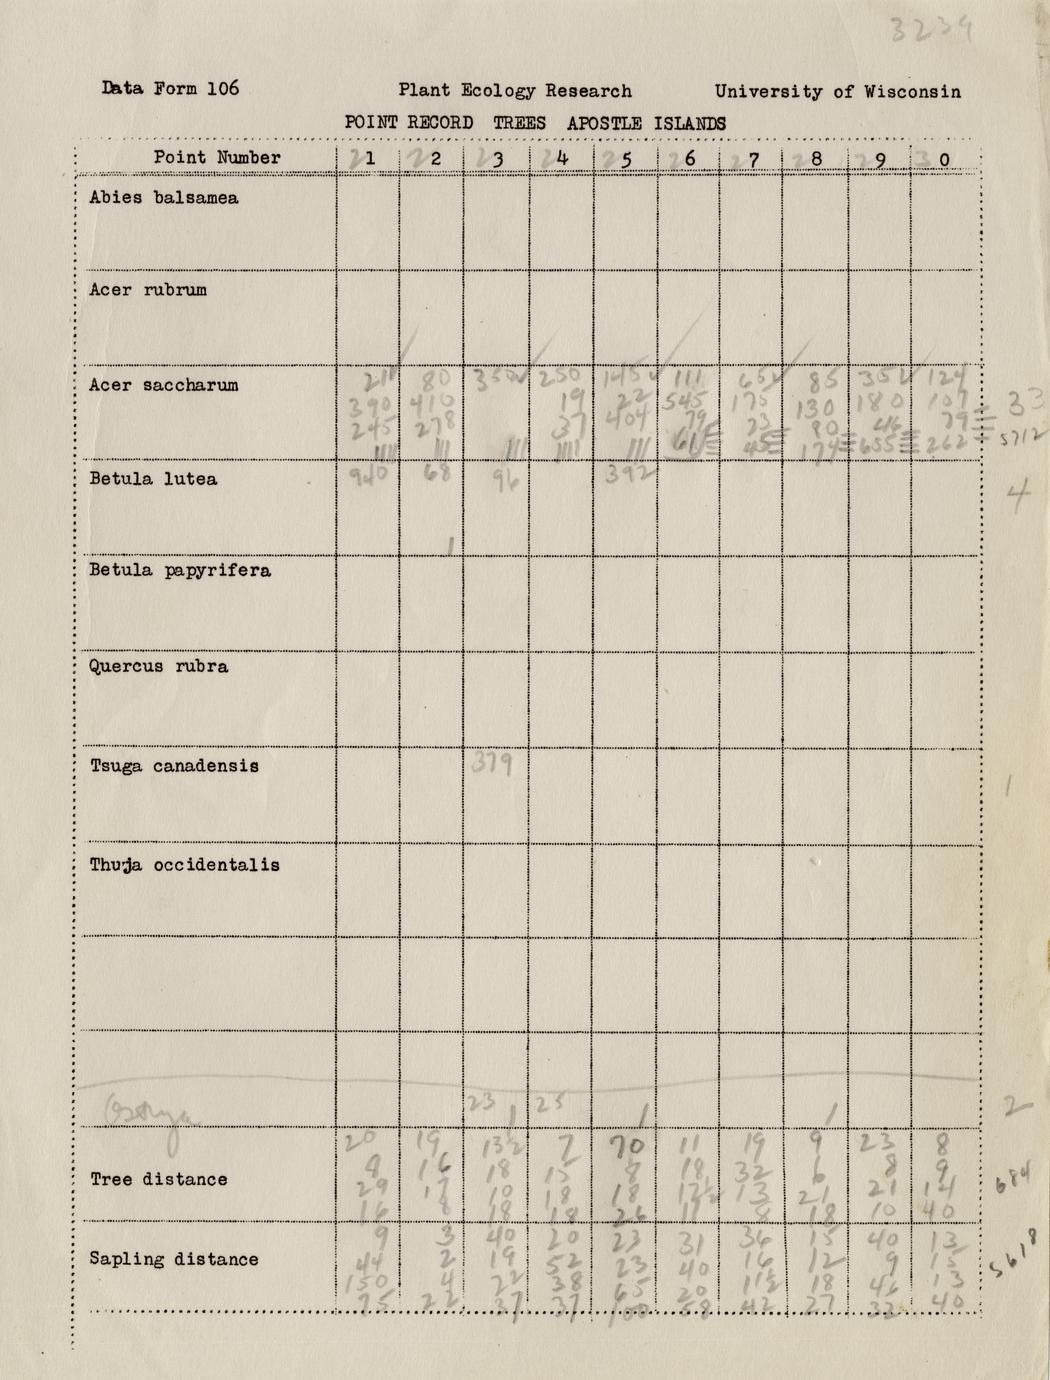 3239
Data Form 106 Plant Ecology Research University of Wisconsin
POINT RECORD TREES APOSTLE ISLANDS
Point Number 21 22 23 24 25 26 27 28 29 30
Abies balsamea
Acer rubrum
Acer saccharum 211 80 350 250 145 111 65 85 35 124
390 410 19 22 545 175 130 180 107 33
245 278 37 404 79 23 80 79 5712
61 45 174 655 262
Betula lutea 940 68 96 392 4
Betula papyrifera
Quercus rubra
Tsuga canadensis 379 1
Thuja occidentalis
Ostrya 23 25 2
20 19 13½ 7 70 11 19 9 23 8
9 16 18 15 8 18 32 6 8 9
Tree distance 29 17 10 18 18 12½ 13 21 21 14 684
16 8 18 18 26 11 8 18 10 40
9 3 40 20 23 31 36 15 40 13
Sapling distance 44 2 19 52 23 40 16 12 9 15 5618
150 4 22 38 65 20 11½ 18 46 13
75 22 37 37 100 58 42 27 32 40